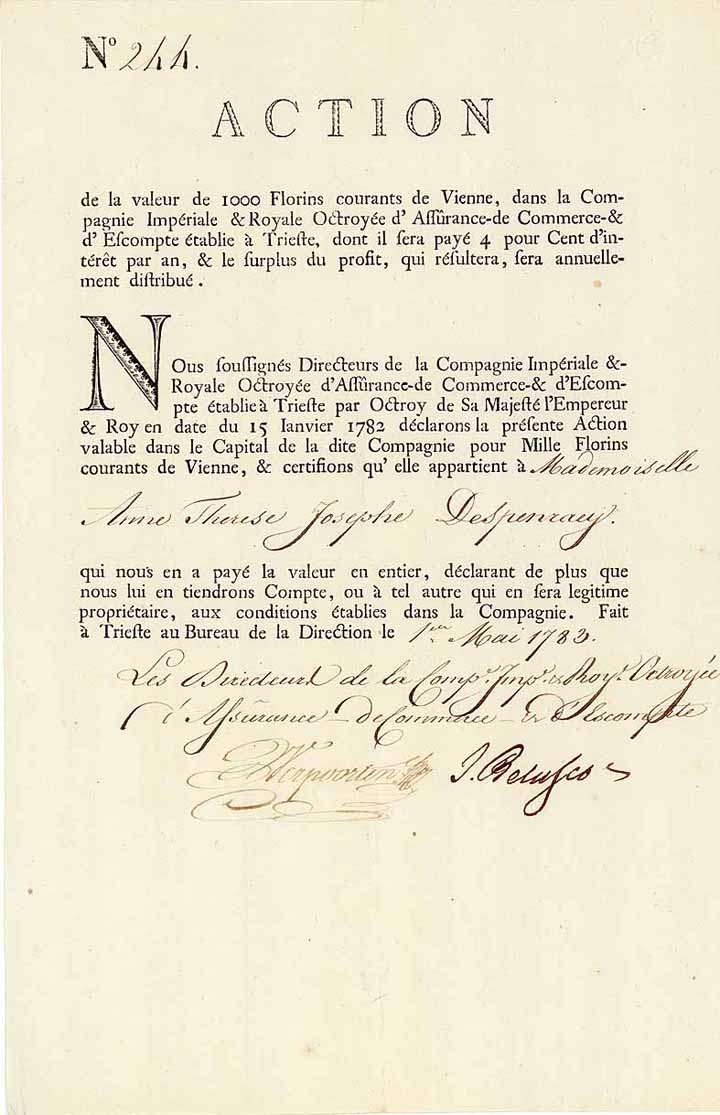 Nº 244.
ACTION
de la valeur de 1000 Florins courants de Vienne, dans la Com-
pagnie Impériale & Royale Octroyée d' Aſſûrance-de Commerce-&
d' Eſcompte établie à Trieſte, dont il ſera payé 4 pour Cent d'in-
térêt par an, & le ſurplus du profit, qui réſultera, ſera annuelle-
ment diſtribué.
NOus ſouſſignés Directeurs de la Compagnie Impériale &-
Royale Octroyée d'Aſſûrance-de Commerce-& d'Eſcom-
pte établie à Trieſte par Octroy de Sa Majeſté l'Empereur
& Roy en date du 15 Ianvier 1782 déclarons la préſente Action
valable dans le Capital de la dite Compagnie pour Mille Florins
courants de Vienne, & certifions qu' elle appartient à Mademoiselle
Anne Therese Josephe
qui nous en a payé la valeur en entier, déclarant de plus que
nous lui en tiendrons Compte, ou à tel autre qui en sera legitime
propriétaire, aux conditions établies dans la Compagnie. Fait
à Trieſte au Bureau de la Direction le 1er Mai 1782.
Les Directeurs de la Compe. Impe. & Roye. Octroyée
d'Aſsûrance - de Commerce - & d'Escompte